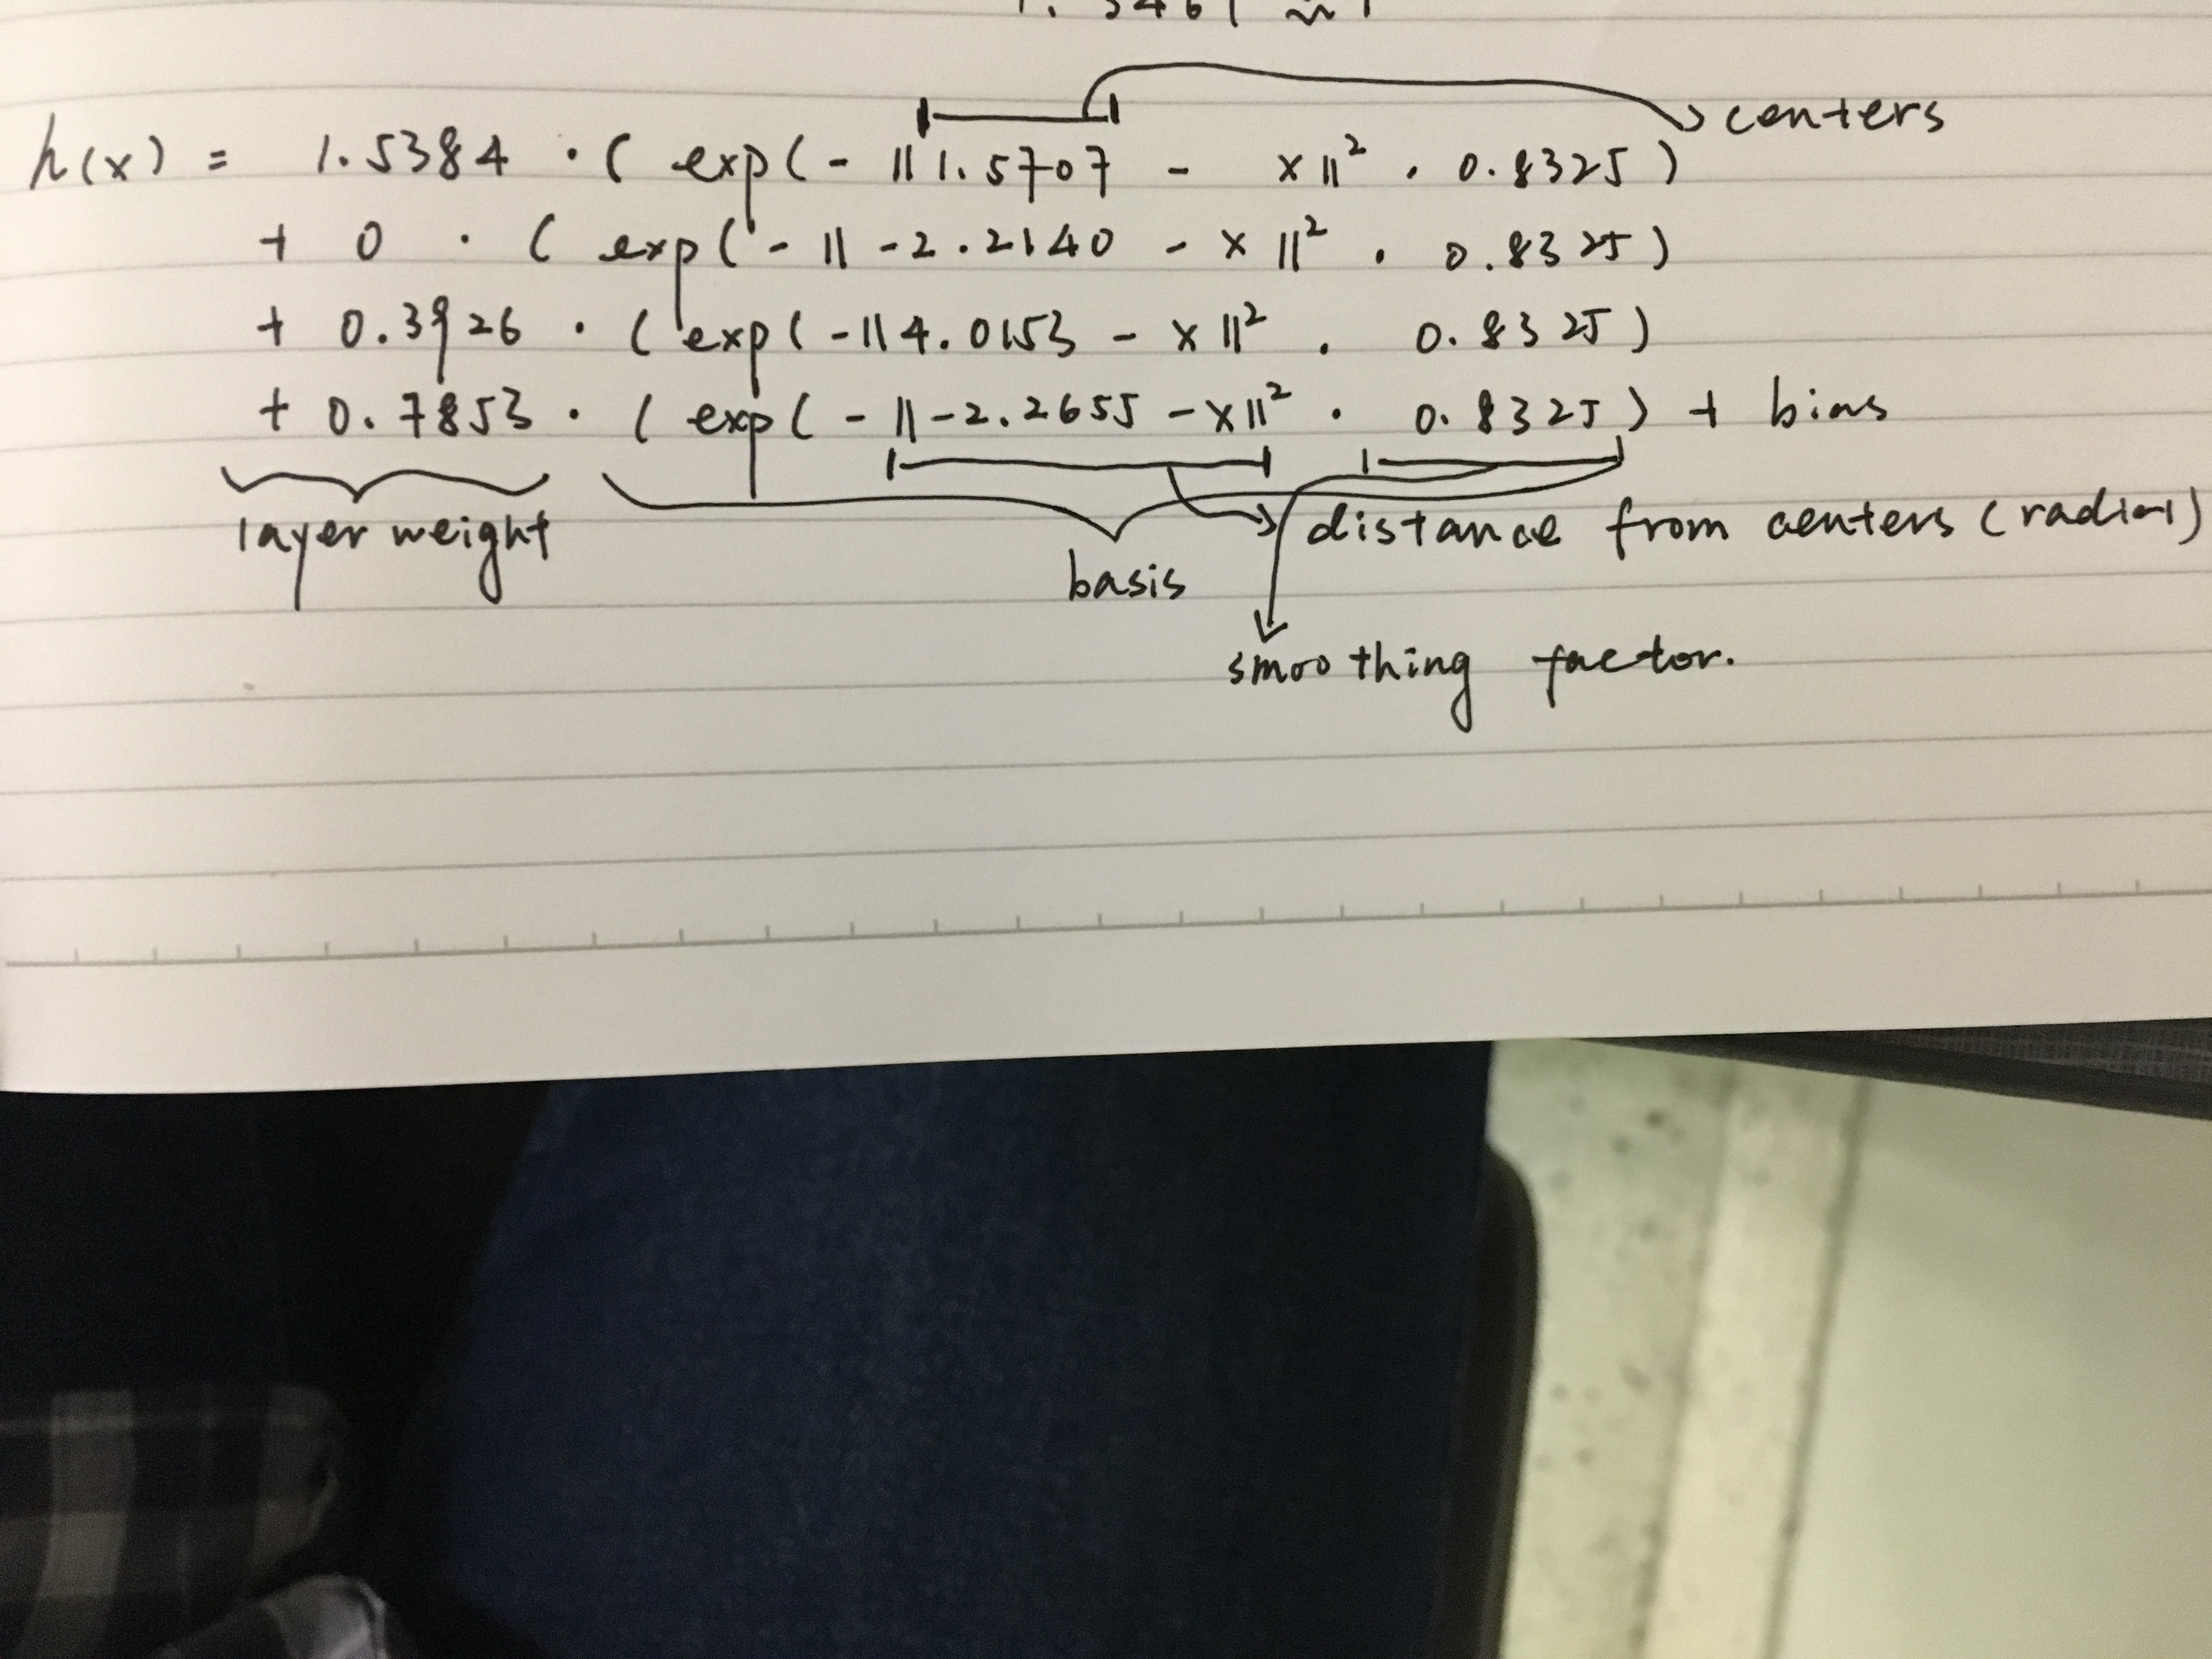 h(x) = 1.5384 · ( exp( - || 1.5707 - x||² · 0.8325 )
+ 0 · ( exp( - || -2.2140 - x ||² · 0.8325 )
+ 0.3926 · ( exp( -|| 4.0153 - x ||² · 0.8325 )
+ 0.7853 · ( exp( - || -2.2655 - x||² · 0.8325 ) + bias
centers
layer weight
basis
distance from centers (radial)
smoothing factor.